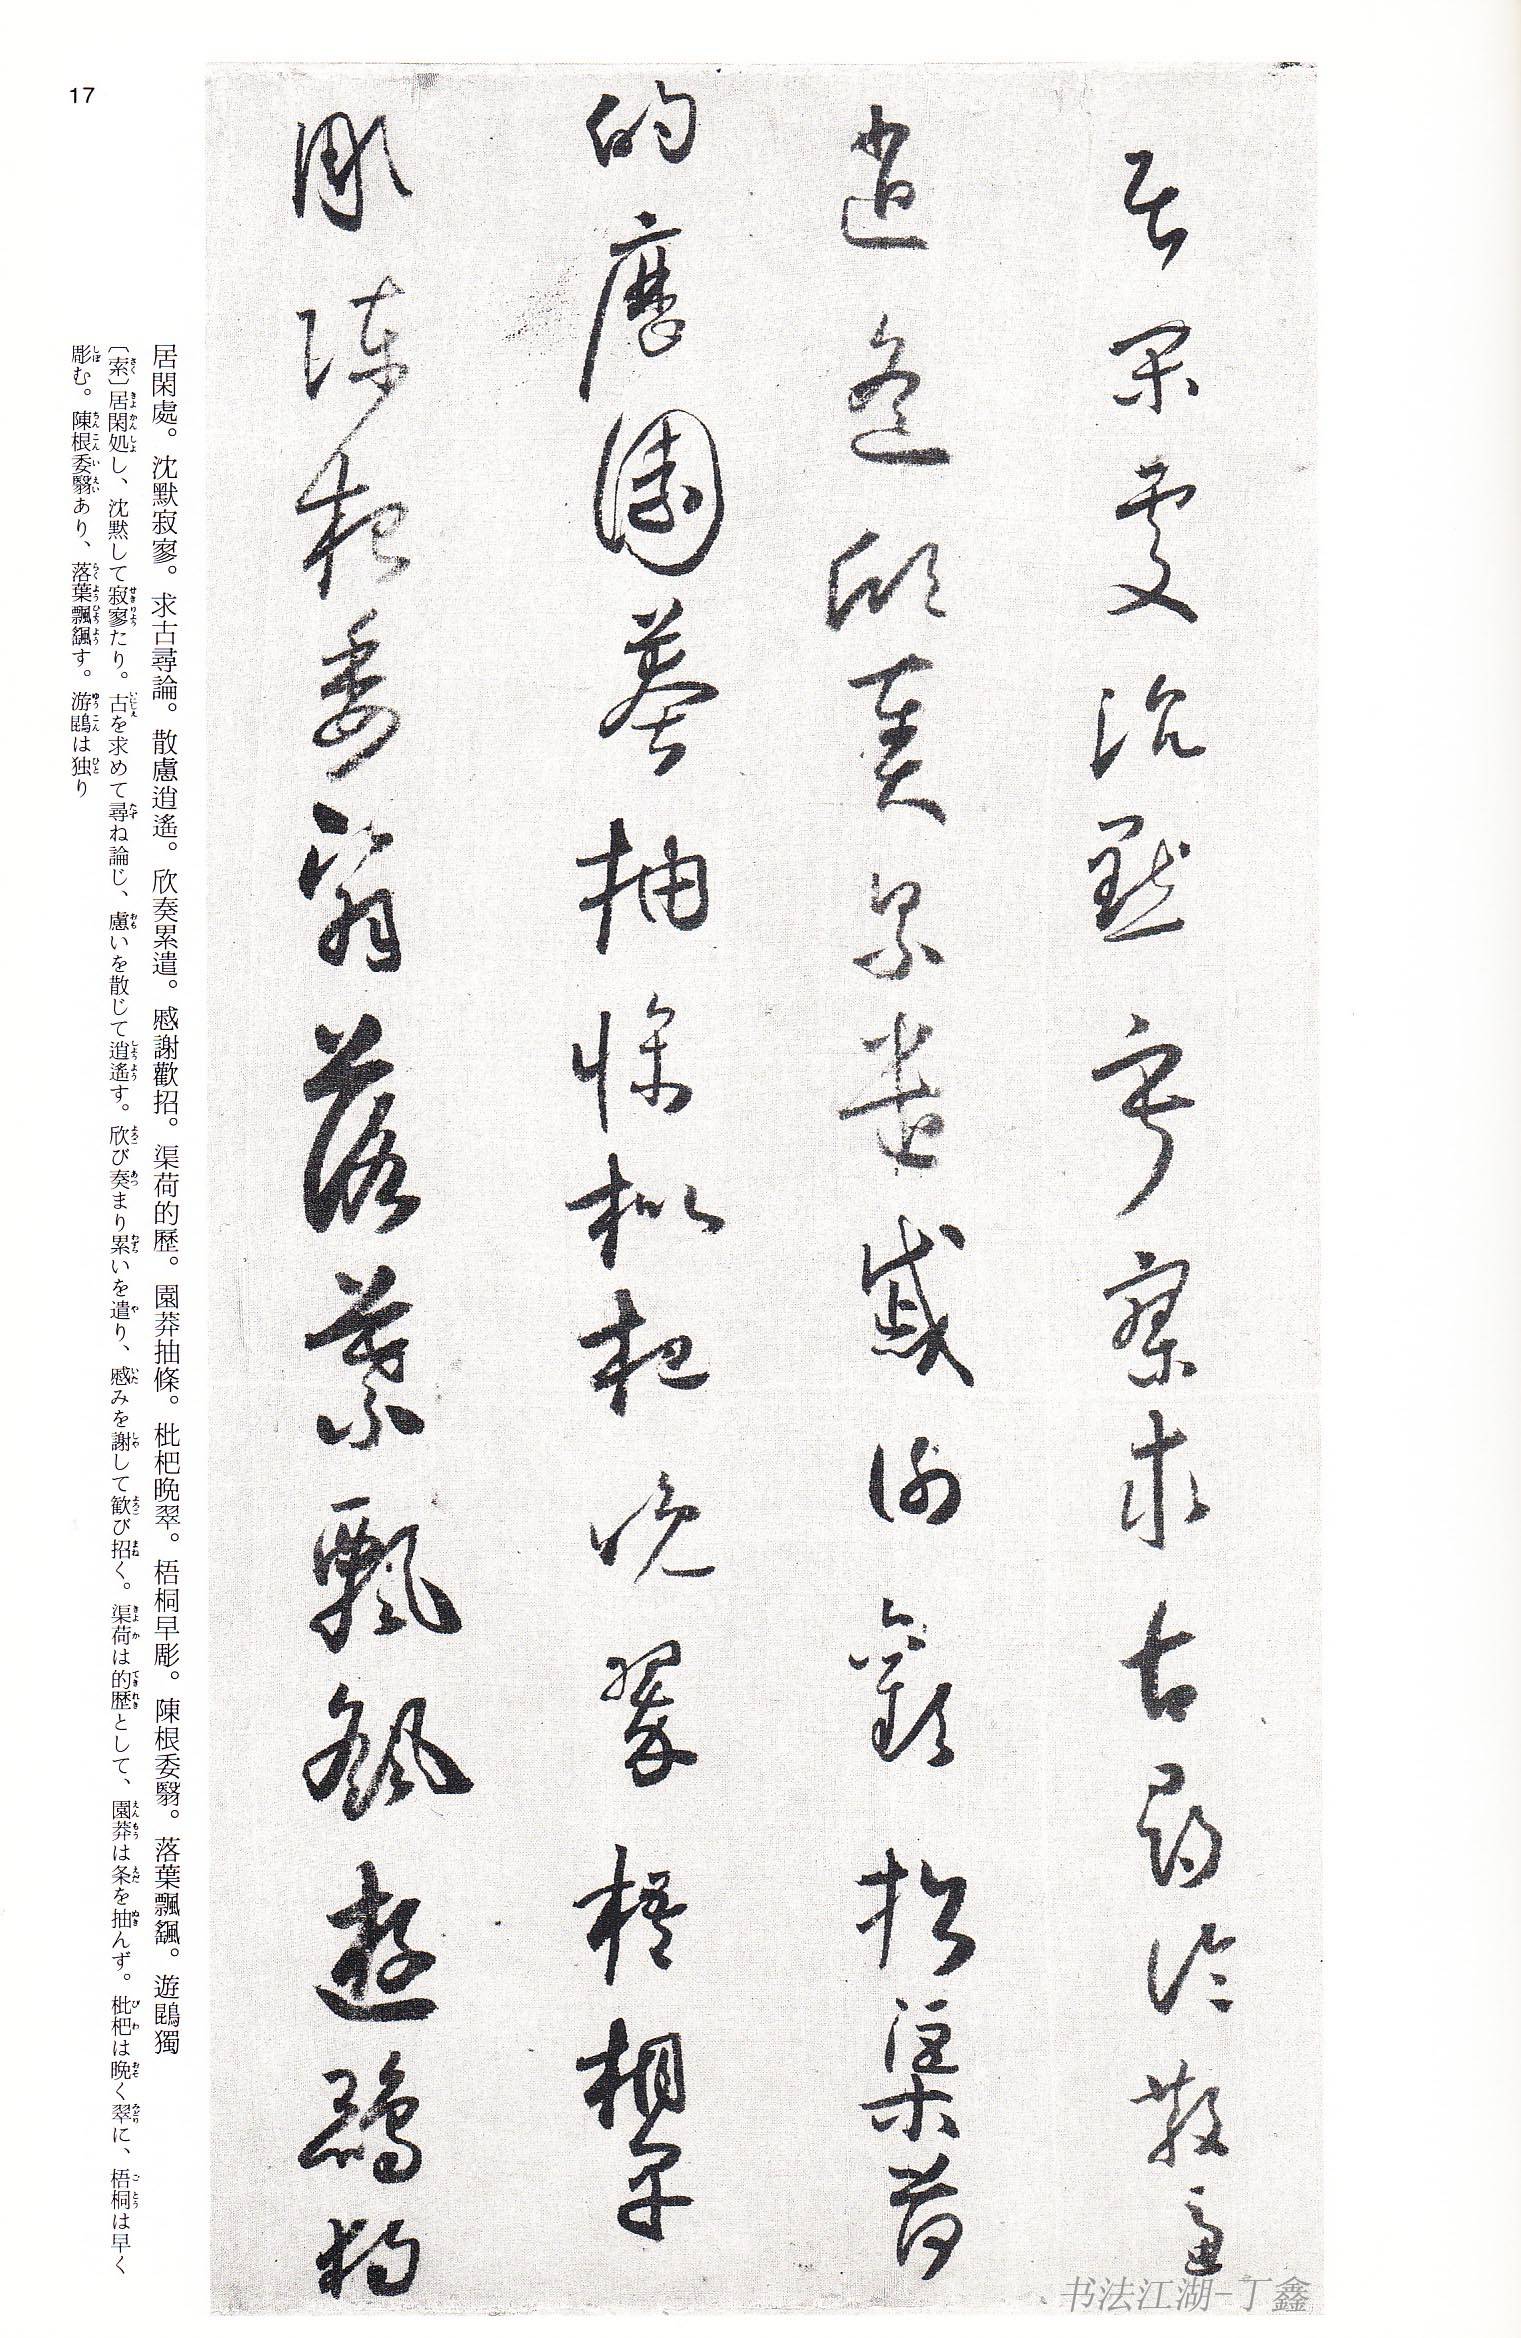 居閑處沈默寂寥求古尋論散慮
逍遙欣奏累遣慼謝歡招渠荷
的歷園莽抽條枇杷晚翠梧桐早
彫陳根委翳落葉飄颻遊鵾獨
居閑處。沈默寂寥。求古尋論。散慮逍遙。欣奏累遣。慼謝歡招。渠荷的歷。園莽抽條。枇杷晚翠。梧桐早彫。陳根委翳。落葉飄颻。遊鵾獨
〔索〕居閑処し、沈黙して寂寥たり。古を求めて尋ね論じ、慮いを散じて逍遙す。欣び奏まり累いを遣り、慼みを謝して歓び招く。渠荷は的歷として、園莽は条を抽んず。枇杷は晩く翠に、梧桐は早く
彫む。陳根委翳あり、落葉飄颻す。游鵾は独り
17
书法江湖-丁鑫